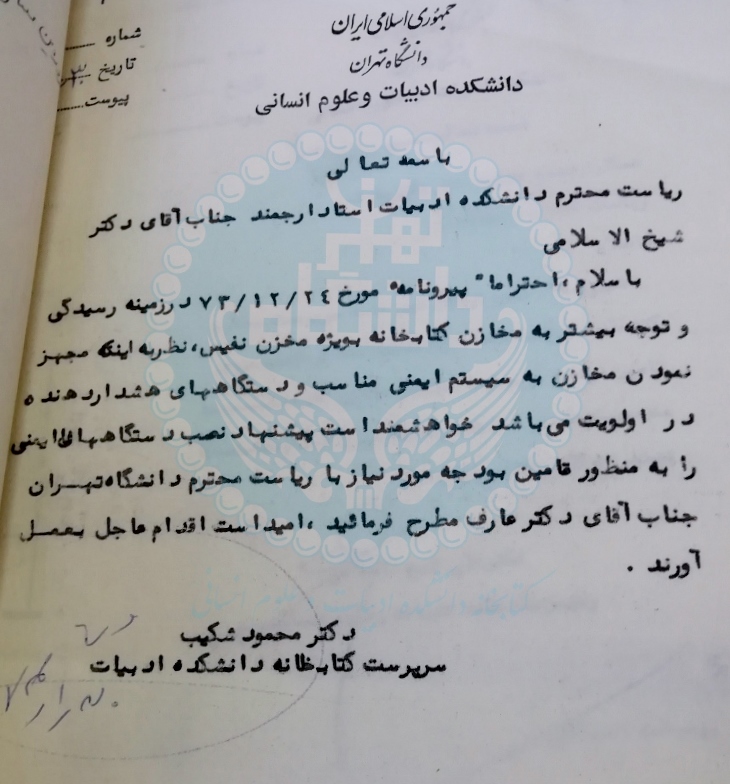 جمهوری اسلامی ایران
دانشگاه تهران
دانشکده ادبیات و علوم انسانی
شماره
تاریخ
پیوست
باسمه تعالی
ریاست محترم دانشکده ادبیات استاد ارجمند جناب آقای دکتر
شیخ الاسلامی
با سلام ، احتراما" پیرو نامه مورخ ۷۳/۱۲/۲٤ در زمینه رسیدگی
و توجه بیشتر به مخازن کتابخانه بویژه مخزن نفیس، نظر به اینکه مجهز
نمودن مخازن به سیستم ایمنی مناسب و دستگاههای هشدار دهنده
در اولویت می باشد خواهشمند است پیشنهاد نصب دستگاههای ایمنی
را به منظور تامین بودجه مورد نیاز با ریاست محترم دانشگاه تهران
جناب آقای دکتر عارف مطرح فرمائید ، امید است اقدام عاجل بعمل
آورند .
دکتر محمود شکیب
سرپرست کتابخانه دانشکده ادبیات
دانشگاه تهران
کتابخانه دانشکده ادبیات و علوم انسانی